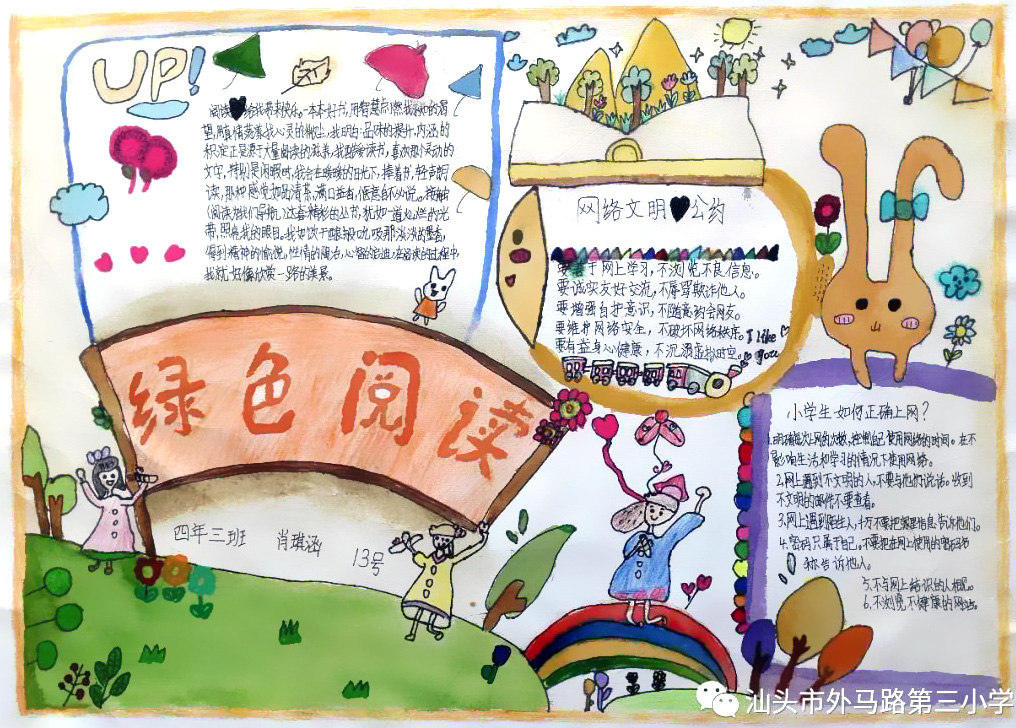 UP!
阅读给我带来快乐。一本本好书,用智慧点燃我求知的渴
望,用真情荡着我心灵的
积淀正是源于大量阅读的滋养,我酷爱读书,喜欢那灵动的
文字,特别是闲暇时,我会在暖暖的阳光下,捧着书,轻声朗
读,那种感觉如品清茶,满口益香,惬意自不必说。接触
《阅读为我们导航》这套精彩的丛书,犹如一道灿烂的光
带,照亮我的眼目。我如饮甘呼吸那淡淡的墨香,
得到精神的愉悦,性情的陶冶,心智的启迪,在阅读的过程中,
我就好像欣赏一路的美景。
网络文明公约
要善于网上学习,不浏览不良信息。
要诚实友好交流,不辱骂欺诈他人。
要增强自护意识,不随意约会网友。
要维护网络安全,不破坏网络秩序。
要有益身心健康,不沉溺虚拟时空。
I like
you
绿色阅读
四年三班 肖琪涵 13号
小学生如何正确上网?
1.明确每次上网的次数,控制自己使用网络的时间。在不
影响生活和学习的情况下使用网络。
2.网上遇到不文明的人,不要与他们说话。收到
不文明的邮件不要查看。
3.网上遇到陌生人,千万不要把家里信息告诉他们。
4.密码只属于自己。不要把在网上使用的密码名
称告诉他人。
5.不与网上结识的人相见。
6.不浏览不健康的网站。
汕头市外马路第三小学